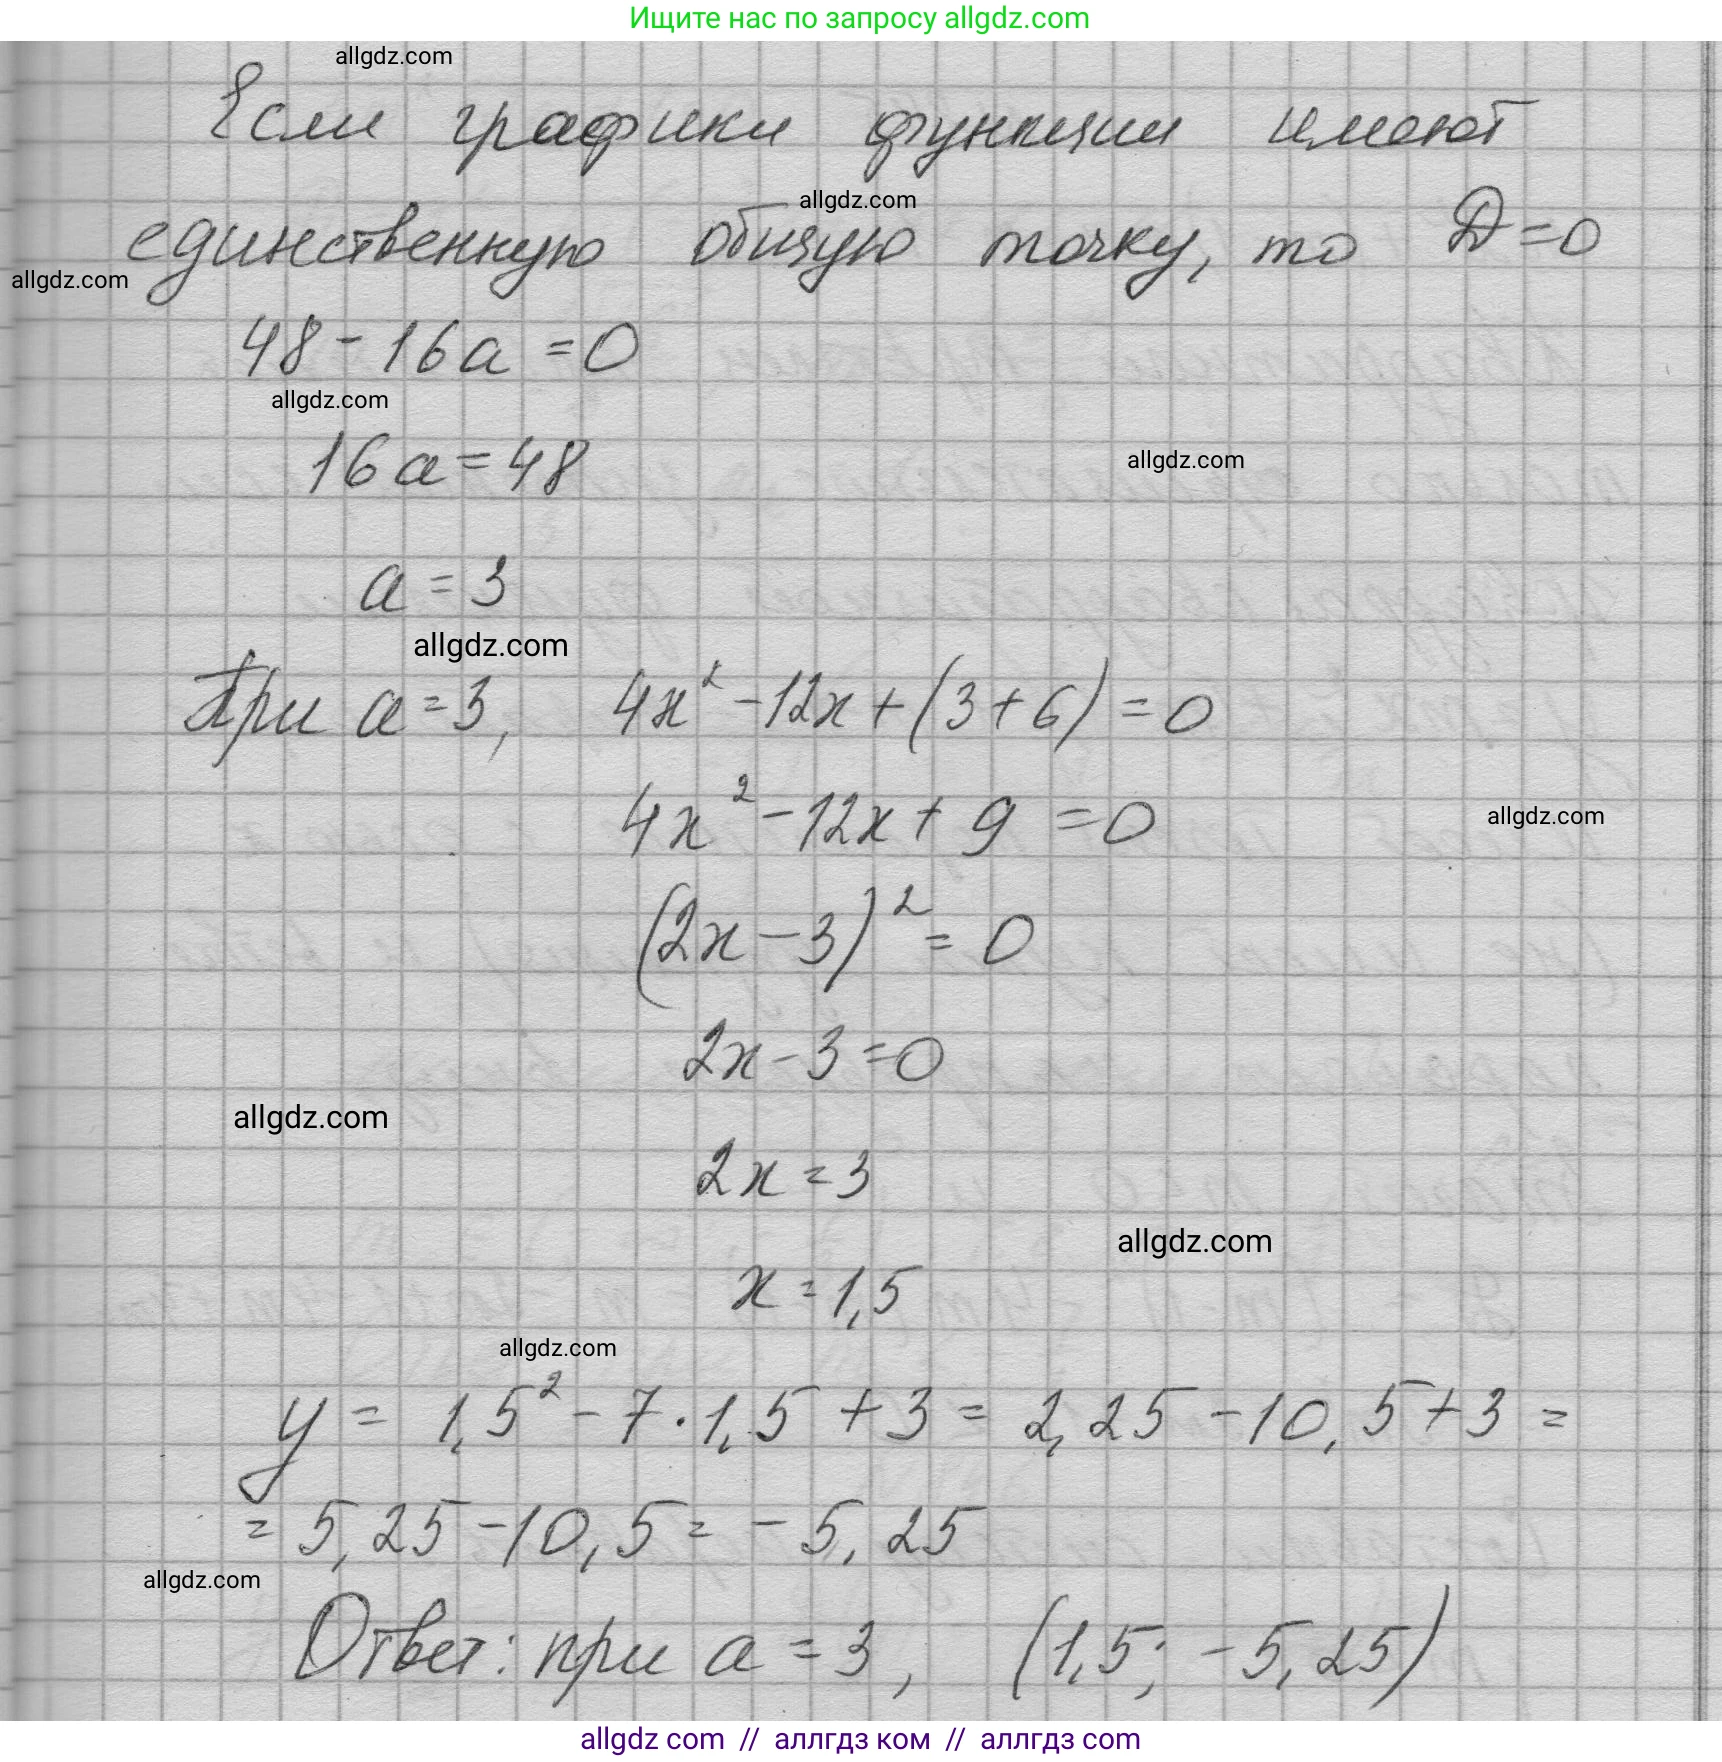 Ищите нас по запросу allgdz.com
allgdz.com
Если графики функции имеют
allgdz.com
единственную общую точку, то D=0
allgdz.com
48-16a=0
allgdz.com
16a=48
allgdz.com
a=3
allgdz.com
При a=3, 4x²-12x+(3+6)=0
4x²-12x+9=0
allgdz.com
(2x-3)²=0
2x-3=0
allgdz.com
2x=3
allgdz.com
x=1,5
allgdz.com
y=1,5²-7·1,5+3=2,25-10,5+3=
=5,25-10,5=-5,25
allgdz.com
Ответ: при a=3, (1,5; -5,25)
allgdz.com // аллгдз ком // аллгдз com